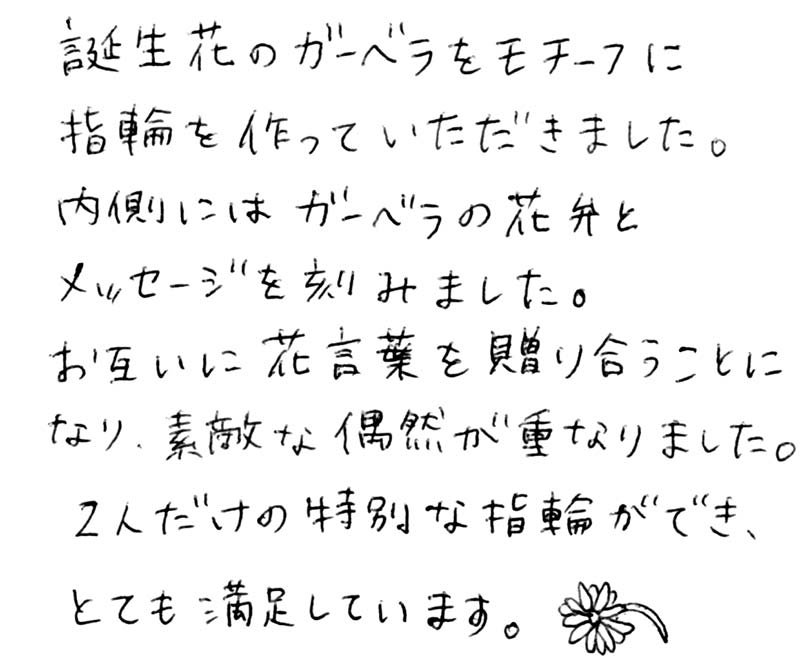 誕生花のガーベラをモチーフに
指輪を作っていただきました。
内側にはガーベラの花弁と
メッセージを刻みました。
お互いに花言葉を贈り合うことに
なり、素敵な偶然が重なりました。
2人だけの特別な指輪ができ、
とても満足しています。